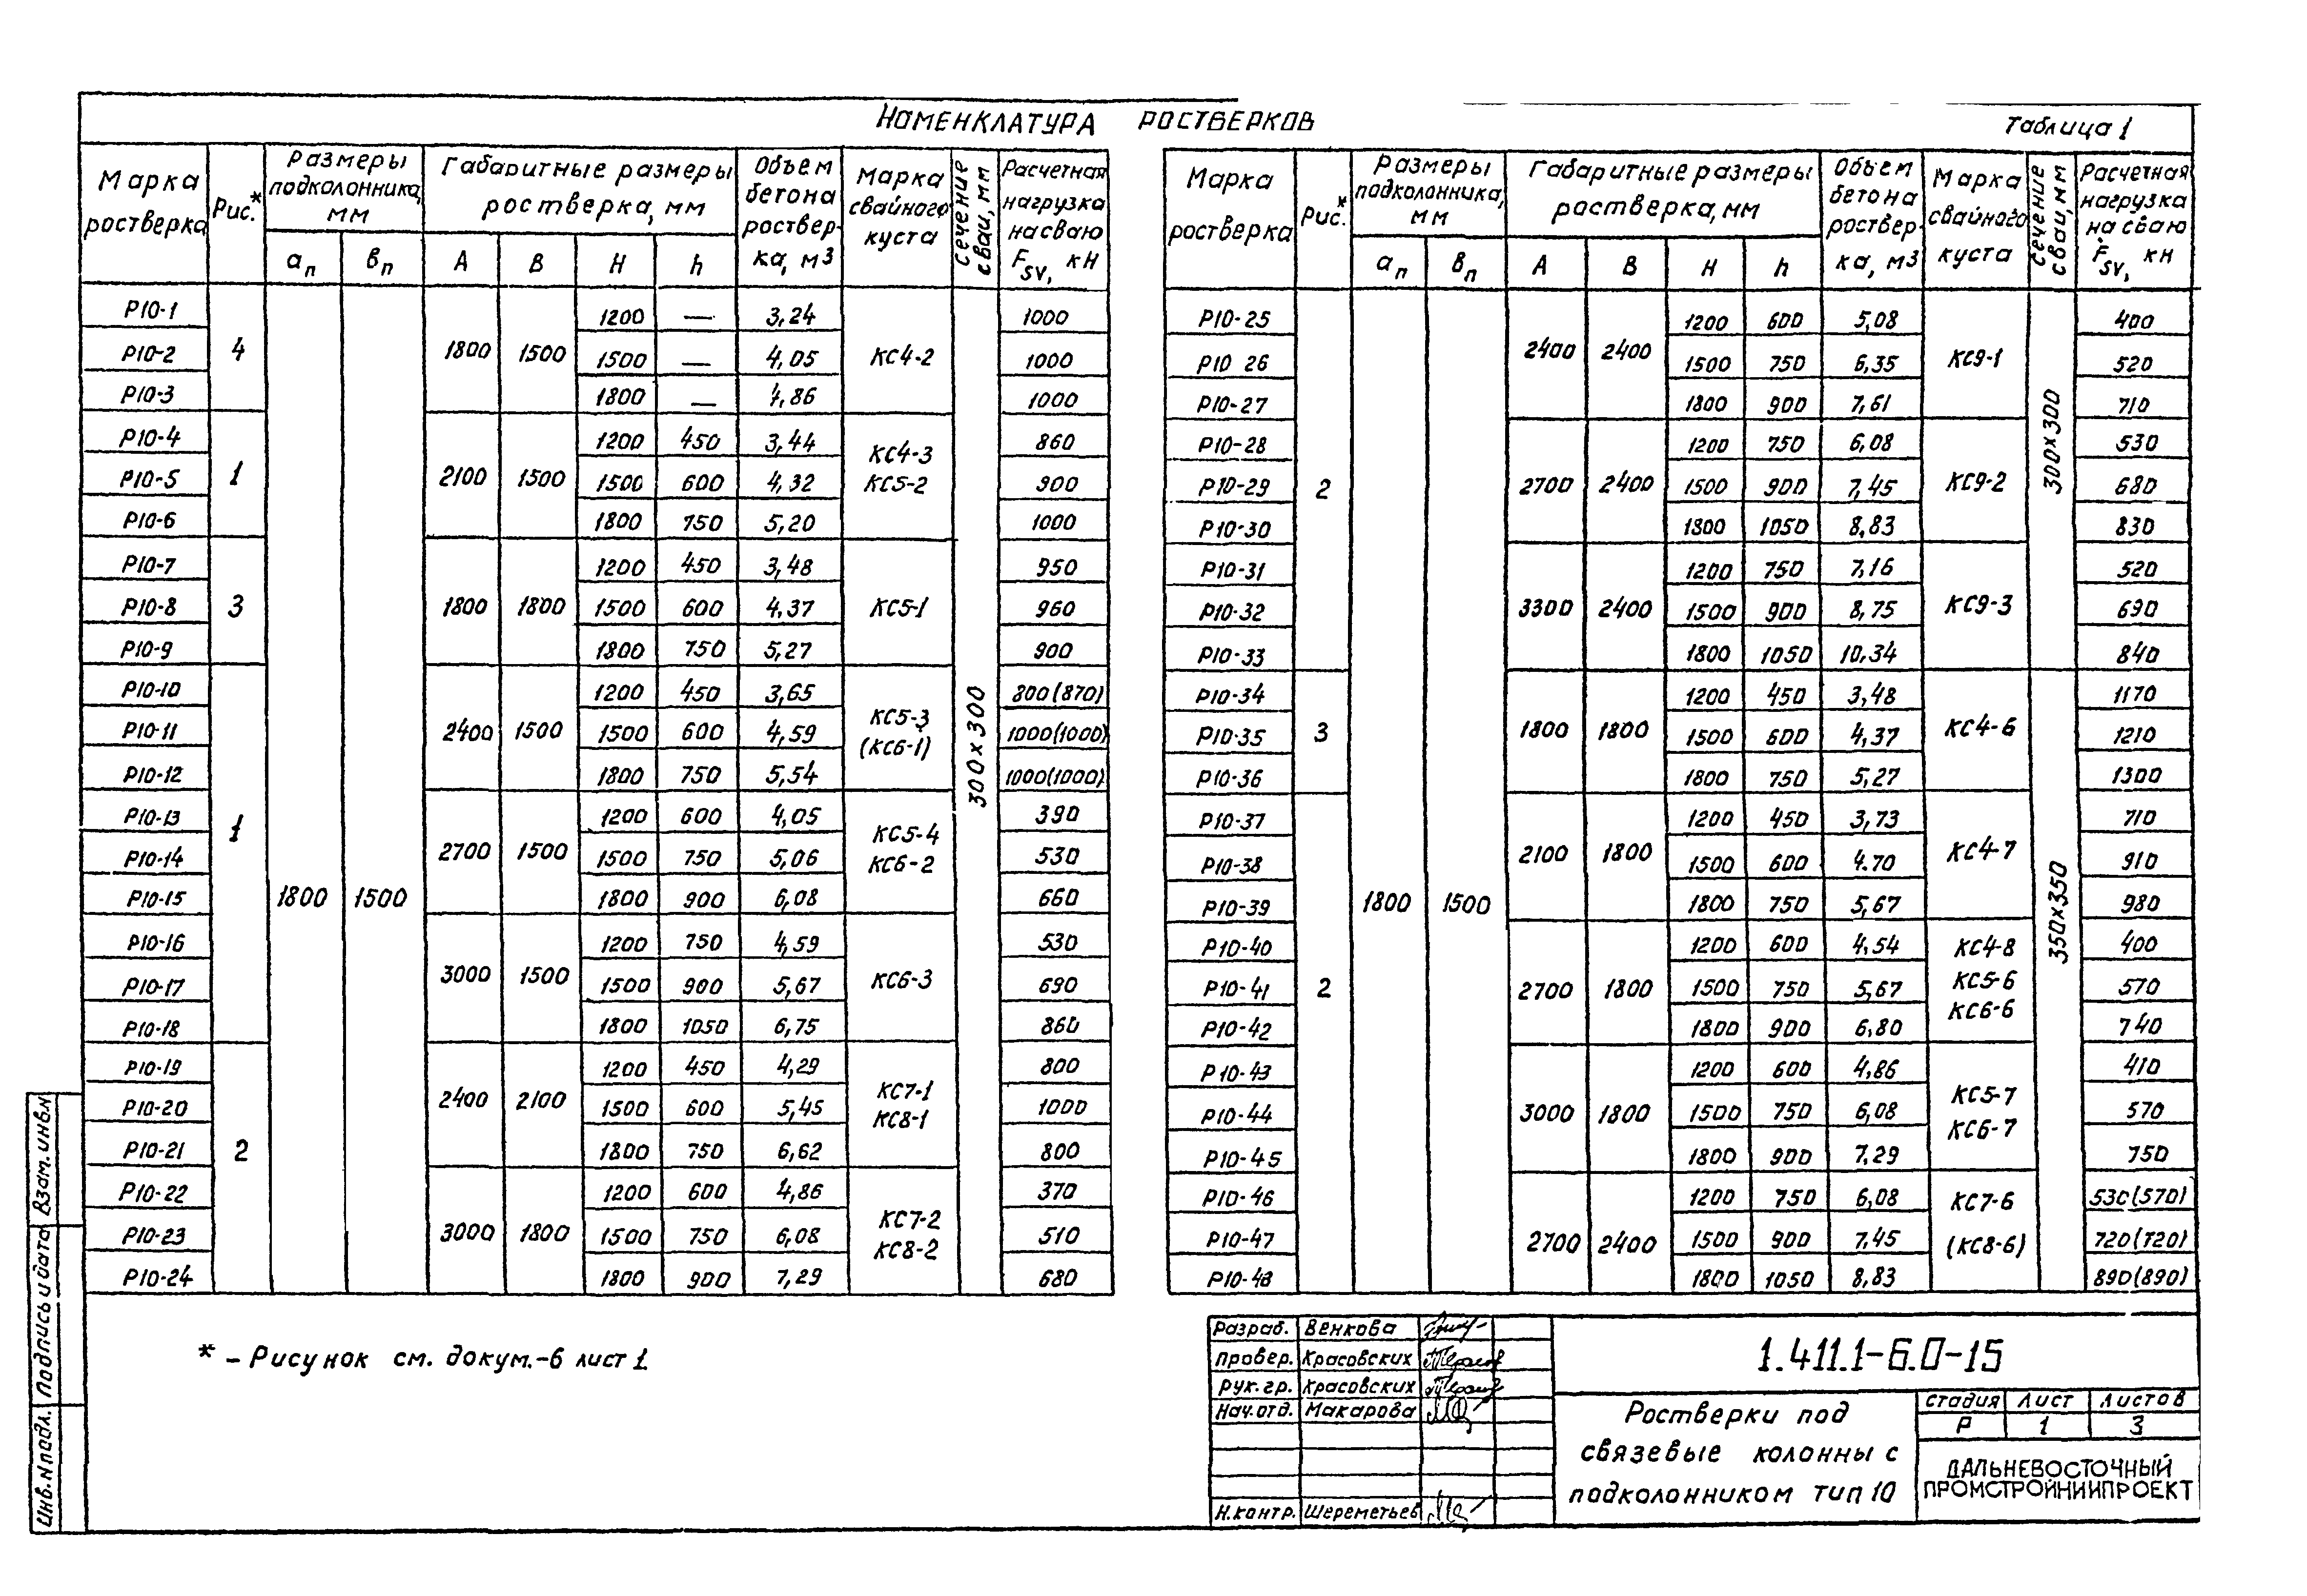 Номенклатура ростверков
Таблица 1
Марка ростверка | Рис.* | Размеры подколонника, мм | Габаритные размеры ростверка, мм | Объем бетона роствер-ка, м3 | Марка свайного куста | Сечение сваи, мм | Расчетная нагрузка на сваю Fsv, кН
aп | вп | А | В | Н | h
Р10-1 | 4 | 1800 | 1500 | 1800 | 1500 | 1200 | — | 3,24 | КС4-2 | 300х300 | 1000
Р10-2 | 1500 | — | 4,05 | 1000
Р10-3 | 1800 | — | 4,86 | 1000
Р10-4 | 1 | 2100 | 1500 | 1200 | 450 | 3,44 | КС4-3 КС5-2 | 860
Р10-5 | 1500 | 600 | 4,32 | 900
Р10-6 | 1800 | 750 | 5,20 | 1000
Р10-7 | 3 | 1800 | 1800 | 1200 | 450 | 3,48 | КС5-1 | 950
Р10-8 | 1500 | 600 | 4,37 | 960
Р10-9 | 1800 | 750 | 5,27 | 900
Р10-10 | 1 | 2400 | 1500 | 1200 | 450 | 3,65 | КС5-3 (КС6-1) | 800(870)
Р10-11 | 1500 | 600 | 4,59 | 1000(1000)
Р10-12 | 1800 | 750 | 5,54 | 1000(1000)
Р10-13 | 2700 | 1500 | 1200 | 600 | 4,05 | КС5-4 КС6-2 | 390
Р10-14 | 1500 | 750 | 5,06 | 530
Р10-15 | 1800 | 900 | 6,08 | 660
Р10-16 | 3000 | 1500 | 1200 | 750 | 4,59 | КС6-3 | 530
Р10-17 | 1500 | 900 | 5,67 | 690
Р10-18 | 1800 | 1050 | 6,75 | 860
Р10-19 | 2 | 2400 | 2100 | 1200 | 450 | 4,29 | КС7-1 КС8-1 | 800
Р10-20 | 1500 | 600 | 5,45 | 1000
Р10-21 | 1800 | 750 | 6,62 | 800
Р10-22 | 3000 | 1800 | 1200 | 600 | 4,86 | КС7-2 КС8-2 | 370
Р10-23 | 1500 | 750 | 6,08 | 510
Р10-24 | 1800 | 900 | 7,29 | 680
Марка ростверка | Рис.* | Размеры подколонника, мм | Габаритные размеры ростверка, мм | Объем бетона роствер-ка, м3 | Марка свайного куста | Сечение сваи, мм | Расчетная нагрузка на сваю Fsv, кН
aп | вп | А | В | Н | h
Р10-25 | 2 | 1800 | 1500 | 2400 | 2400 | 1200 | 600 | 5,08 | КС9-1 | 300х300 | 400
Р10 26 | 1500 | 750 | 6,35 | 520
Р10-27 | 1800 | 900 | 7,61 | 710
Р10-28 | 2700 | 2400 | 1200 | 750 | 6,08 | КС9-2 | 530
Р10-29 | 1500 | 900 | 7,45 | 680
Р10-30 | 1800 | 1050 | 8,83 | 830
Р10-31 | 3300 | 2400 | 1200 | 750 | 7,16 | КС9-3 | 520
Р10-32 | 1500 | 900 | 8,75 | 690
Р10-33 | 1800 | 1050 | 10,34 | 840
Р10-34 | 3 | 1800 | 1800 | 1200 | 450 | 3,48 | КС4-6 | 350х350 | 1170
Р10-35 | 1500 | 600 | 4,37 | 1210
Р10-36 | 1800 | 750 | 5,27 | 1300
Р10-37 | 2 | 2100 | 1800 | 1200 | 450 | 3,73 | КС4-7 | 710
Р10-38 | 1500 | 600 | 4.70 | 910
Р10-39 | 1800 | 750 | 5,67 | 980
Р10-40 | 2700 | 1800 | 1200 | 600 | 4,54 | КС4-8 КС5-6 КС6-6 | 400
Р10-41 | 1500 | 750 | 5,67 | 570
Р10-42 | 1800 | 900 | 6,80 | 740
Р10-43 | 3000 | 1800 | 1200 | 600 | 4,86 | КС5-7 КС6-7 | 410
Р10-44 | 1500 | 750 | 6,08 | 570
Р10-45 | 1800 | 900 | 7,29 | 750
Р10-46 | 2700 | 2400 | 1200 | 750 | 6,08 | КС7-6 (КС8-6) | 530(570)
Р10-47 | 1500 | 900 | 7,45 | 720(720)
Р10-48 | 1800 | 1050 | 8,83 | 890(890)
* – Рисунок см. докум.-6 лист 1
Инв.Nподл. Подпись и дата Взам.инв.N
Разраб. Венкова
Провер. Красовских
Рук.гр. Красовских
Нач.отд. Макарова
Н.контр. Шереметьев
1.411.1-6.0-15
Ростверки под
связевые колонны с
подколонником тип 10
Стадия Лист Листов
Р 1 3
ДАЛЬНЕВОСТОЧНЫЙ
ПРОМСТРОЙНИИПРОЕКТ